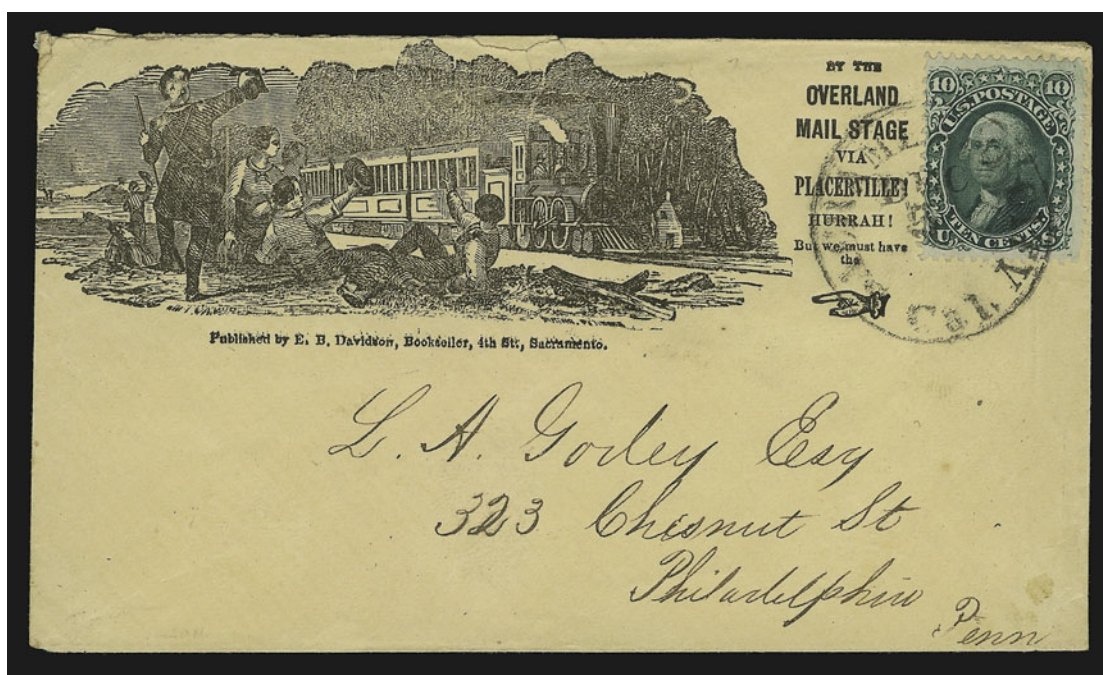 BY THE
OVERLAND
MAIL STAGE
VIA
PLACERVILLE!
HURRAH!
But we must have
the
10 10
U.S. POSTAGE
TEN CENTS.
U S
Published by E. B. Davidson, Bookseller, 4th Str, Sacramento.
L. A. Godey Esq
323 Chesnut St
Philadelphia
Penn